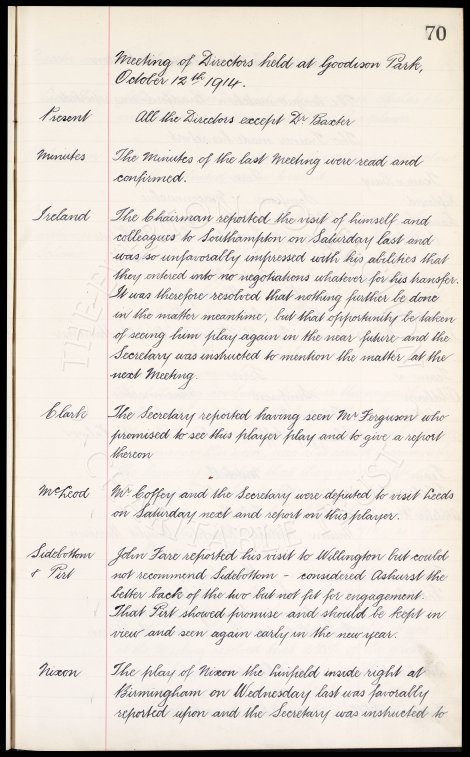 70
Meeting of Directors held at Goodison Park,
October 12th 1914.
Present All the Directors except Dr Baxter
Minutes The Minutes of the last Meeting were read and
confirmed.
Ireland The Chairman reported the visit of himself and
colleagues to Southampton on Saturday last and
was so unfavorably impressed with his abilities that
they entered into no negotiations whatever for his transfer.
It was therefore resolved that nothing further be done
in the matter meantime, but that opportunity be taken
of seeing him play again in the near future and the
Secretary was instructed to mention the matter at the
next Meeting.
Clark The Secretary reported having seen Mr Ferguson who
promised to see this player play and to give a report
thereon
McLeod Mr Coffey and the Secretary were deputed to visit Leeds
on Saturday next and report on this player.
Sidebottom John Fare reported his visit to Willington but could
& Pirt not recommend Sidebottom - considered Ashurst the
better back of the two but not fit for engagement.
That Pirt showed promise and should be kept in
view and seen again early in the new year.
Nixon The play of Nixon the Linfield inside right at
Birmingham on Wednesday last was favorably
reported upon and the Secretary was instructed to